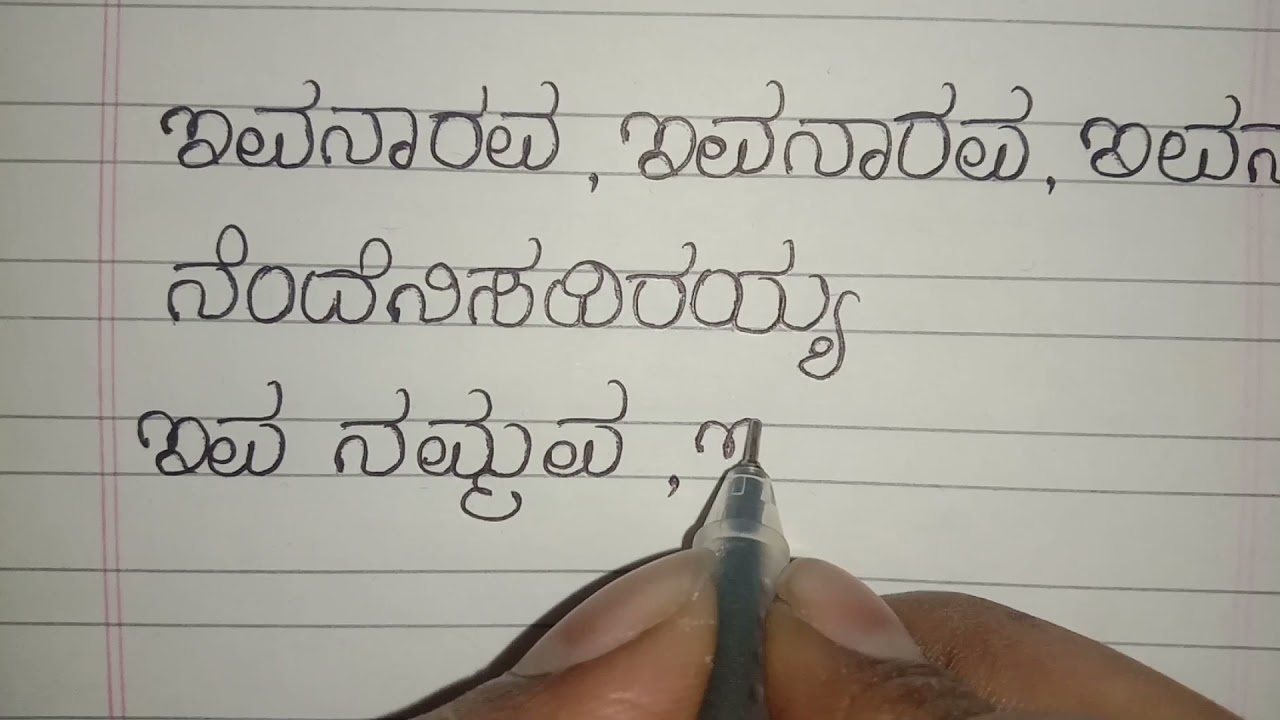 ಇವನಾರವ, ಇವನಾರವ, ಇವನಾ
ನೆಂದೆನಿಸದಿರಯ್ಯ
ಇವ ನಮ್ಮವ, ಇ